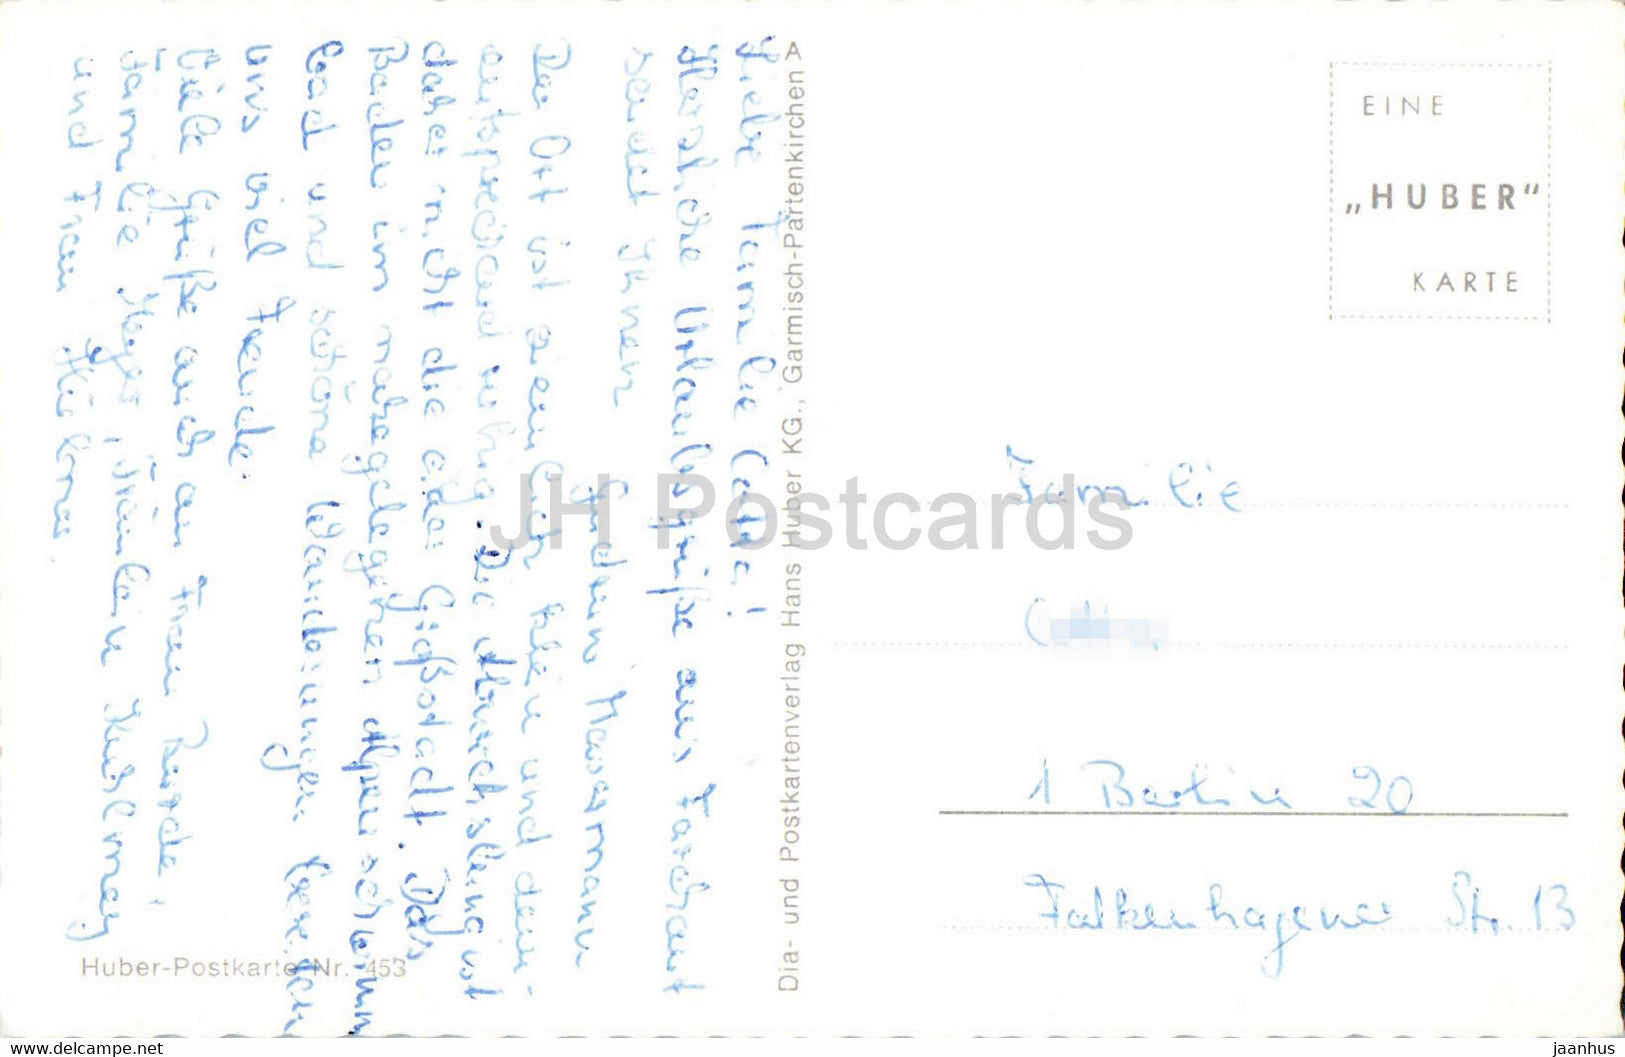 Liebe Familie
Herzliche Urlaubsgrüße aus Farchant
sendet Ihnen
Der Ort ist ziemlich klein und dem-
entsprechend ruhig. Die Abwechslung ist
daher nicht die einer Großstadt. Das
Baden im nahegelegenen Alpenschwimm
bad und schöne Wanderungen bereiten
uns viel Freude.
Viele Grüße auch an Frau
Familie Meyer, Fräulein
und Frau
Dia- und Postkartenverlag Hans Huber KG., Garmisch-Partenkirchen A
Huber-Postkarte Nr. 453
EINE
„HUBER“
KARTE
Familie
1 Berlin 20
Falkenhagener Str. 13
JH Postcards
www.delcampe.net
jaanhus